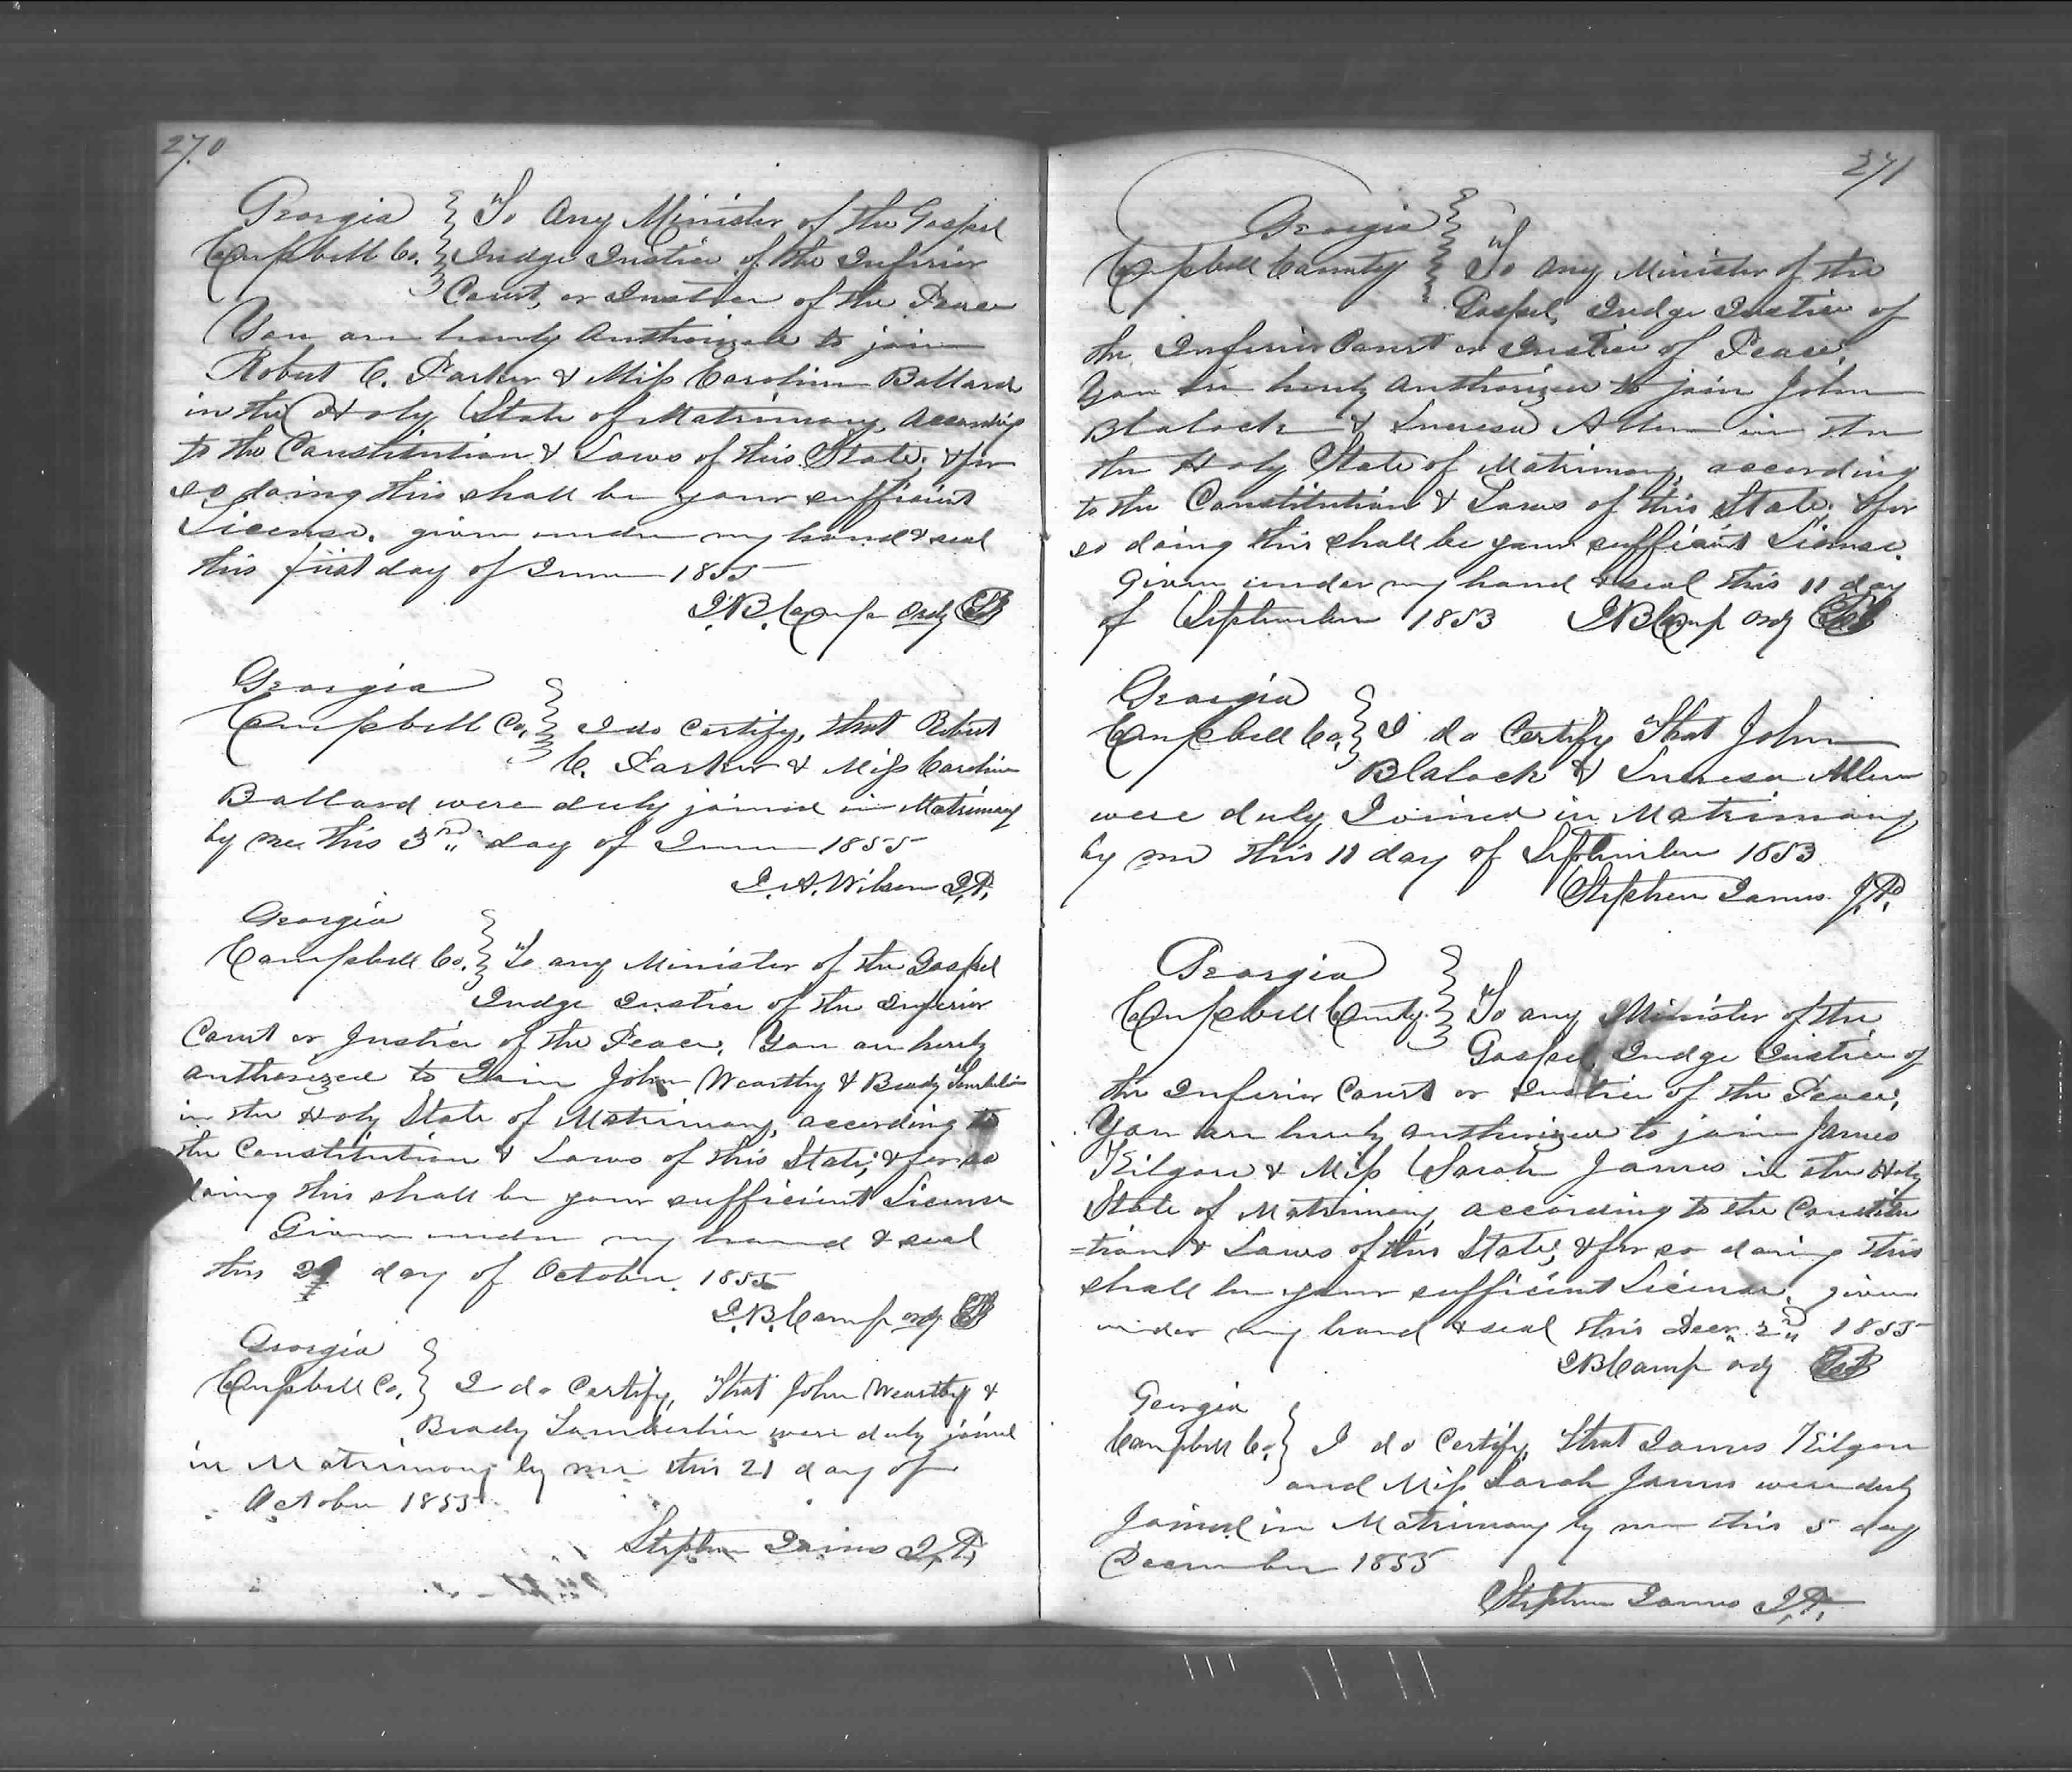 270
Georgia } To Any Minister of the Gospel
Campbell Co. } Judge Justice of the Inferior
Court, or Justice of the Peace
You are hereby Authorized to join
Robert C. Parker & Miss Caroline Ballard
in the Holy State of Matrimony, according
to the Constitution & Laws of this State, & for
so doing this shall be your sufficient
License. given under my hand & seal
this first day of June 1855
J.B. Camp Ordy
Georgia
Campbell Co. } I do Certify, that Robert
C. Parker & Miss Caroline
Ballard were duly joined in Matrimony
by me this 3rd day of June 1855
J. A. Wilson J.P.
Georgia
Campbell Co. } To any Minister of the Gospel
Judge Justice of the Inferior
Court or Justice of the Peace, You are hereby
authorized to Join John Wearthy & Beady
in the Holy State of Matrimony, according to
the Constitution & Laws of this State, & for so
doing this shall be your sufficient License
Given under my hand & seal
this day of October 1855
J.B. Camp ordy
Georgia
Campbell Co. } I do Certify, That John Wearthy &
Beady were duly joined
in Matrimony by me this 21 day of
October 1855
Stephen James J.P.
271
Georgia }
Campbell County } To Any Minister of the
Gospel, Judge Justice of
the Inferior Court or Justice of Peace,
You are hereby authorized to join John
Blalock & Lucresa Allen in the
the Holy State of Matrimony, according
to the Constitution & Laws of this State, & for
so doing this shall be your sufficient License.
Given under my hand & seal this 11 day
of September 1853 J B Camp ordy
Georgia
Campbell Co. } I do Certify That John
Blalock & Lucresa Allen
were duly Joined in Matrimony
by me this 11 day of September 1853
Stephen James J.P.
Georgia
Campbell County } To any Minister of the
Gospel, Judge Justice of
the Inferior Court or Justice of the Peace,
You are hereby authorized to join James
Kilgore & Miss Sarah James in the Holy
State of Matrimony according to the Constitu
=tion & Laws of this State, & for so doing this
shall be your sufficient License. given
under my hand & seal this Decr. 2nd 1855
J B Camp ordy
Georgia
Campbell Co. } I do Certify, That James Kilgore
and Miss Sarah James were duly
Joined in Matrimony by me this 5 day
December 1855
Stephen James J.P.